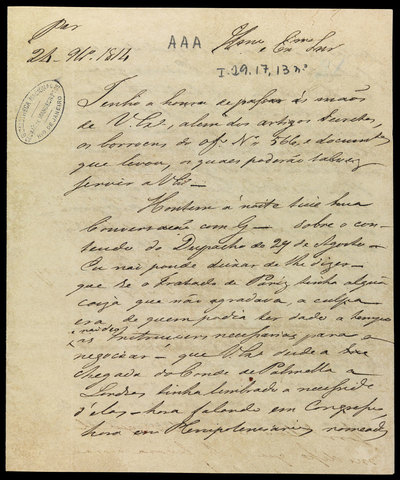 par
24. 9bro. 1814
AAA
Illmo. e Exmo. Snr
I.29.17,13 nº
Tenho a honra de passar ás mãos
de V. Exa., alem dos artigos
os borroens do offº. Nº 566, e documentos
que levou, os quaes poderão talvez
servir a V. Exa. —
Hontem á noite tive huma
conversação com G — sobre o con-
teudo do Despacho de 29 de Agosto —
Eu não pude deixar de lhe dizer —
que se o Tratado de Paris tinha alguma
couza que não agradava, a culpa
era de quem podia ter dado a tempo
e não deu
as Instrucçoens necessarias para
negociar — que V. Exa. desde a
chegada do Conde de Palmella a
Londres tinha lembrado a necessidade
d'elas — hora falando em Congresso
hora em Plenipotenciarios nomeados